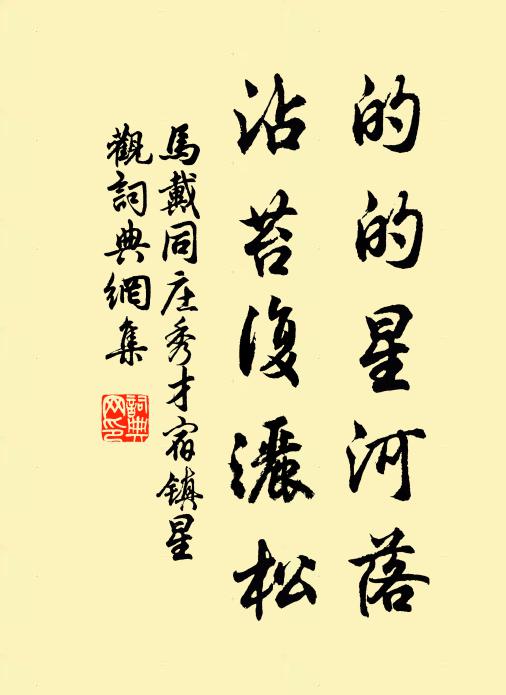 的的星河落
沾苔復灑松
馬戴同庄秀才宿鎮星
觀詞典網集
詞典網印